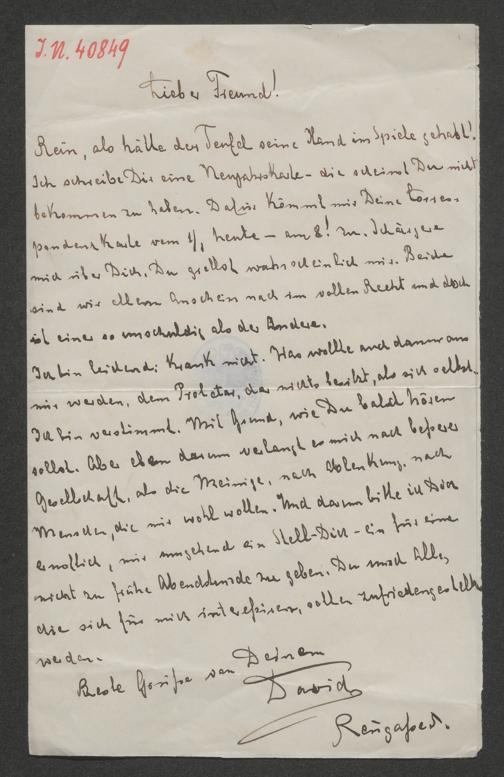 I.N. 40849
Lieber Freund!
Rein, als hätte der Teufel seine Hand im Spiele gehabt!
Ich schreibe Dir eine Neujahrskarte – die scheinst Du nicht
bekommen zu haben. Dafür kommt mir Deine Corres-
pondenzkarte vom 1/1 heute – am 8! zu. Ich ärgere
mich über Dich, Du grollst wahrscheinlich mir. Beide
sind wir allem Anschein nach im vollen Recht und doch
ist einer so unschuldig als der Andere.
Ich bin leidend; Krank nicht. Was wollte auch dann aus
mir werden, dem Proletar, der nichts besitzt, als sich selbst.
Ich bin verstimmt. Mit Grund, wie Du bald hören
sollst. Aber eben darum verlangt es mich nach besserer
Gesellschaft, als die Meinige, nach Ablenkung, nach
Menschen, die mir wohl wollen. Und darum bitte ich Dich
ernstlich, mir umgehend ein Stell-Dich-ein für eine
nicht zu frühe Abendstunde zu geben. Du und Alle,
die sich für mich interessieren, sollen zufriedengestellt
werden.
Beste Grüße von Deinem
David